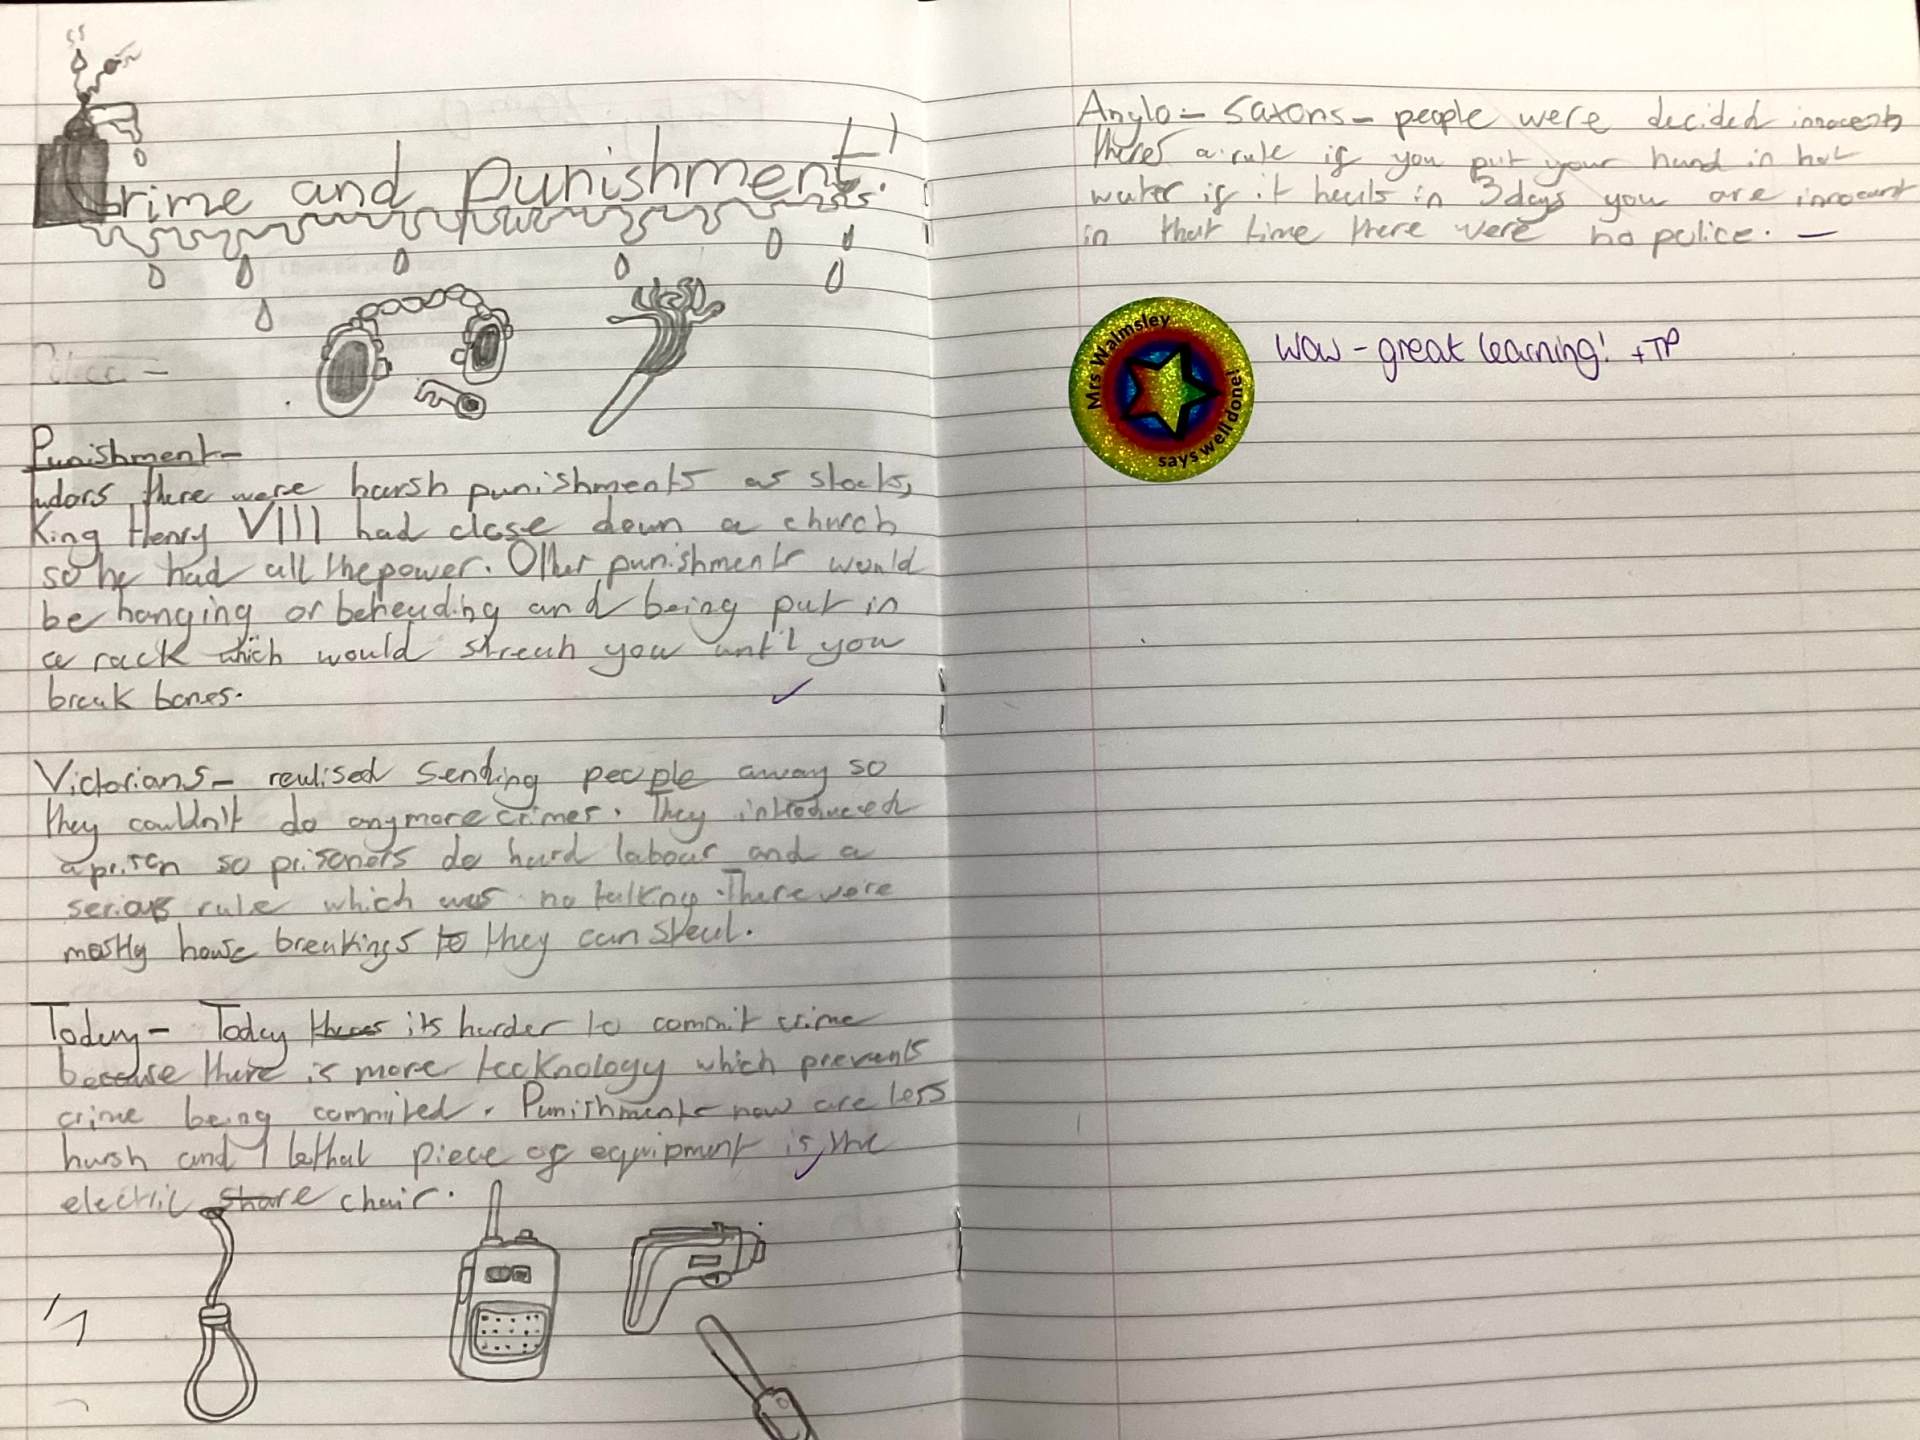 Crime and Punishment!
Punishment-
tudors there were harsh punishments as stocks,
King Henry VIII had close down a church
so he had all the power. Other punishments would
be hanging or beheading and being put in
a rack which would streach you until you
break bones.
Victorians- realised sending people away so
they couldn't do anymore crimes. They introduced
a prison so prisoners do hard labour and a
serious rule which was no talking. There were
mostly house breakings to they can steal.
Today- Today theres its harder to commit crime
because there is more tecknology which prevents
crime being commited. Punishments now are less
harsh and 1 lethal piece of equipment is the
electric share chair.
Anglo-Saxons- people were decided innocent
theres a rule if you put your hand in hot
water if it heals in 3 days you are innocent
in that time there were no police.
Mrs Walmsley
says well done!
Wow - great learning! +TP